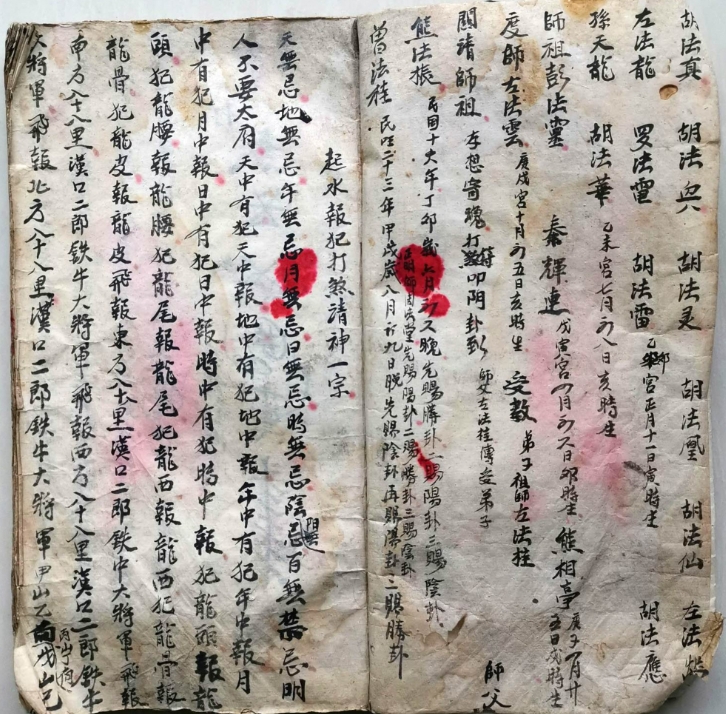 胡法真 胡法兴 胡法灵 胡法凰 胡法仙 左法
左法龍 罗法雷 胡法雷 宮正月十一日寅時生 胡法應
孫天龍 胡法華 乙未宮七月初八日亥時生
師祖彭法靈 秦輝連 戊寅宮八月初久日卯時生 熊相亭 庚子八月廿五日戌時生
度師左法雲 庚戌宮十月初五日亥時生 受教 弟子祖師左法拄
閗請師祖 存想寄魂打煞叩阴卦 師父左法拄傳度弟子 師父
熊法振 民囯十六年丁卯歲六月初久晚先賜勝卦二賜陽卦三賜陰卦
先賜陽卦二賜勝卦三賜陰卦
曾法拄 民囯二十三年甲戌歲八月初九日晚先賜陰卦再賜陽卦二賜勝卦
起水報犯打煞請神一宗
天無忌地無忌年無忌月無忌日無忌時無忌陰忌百無禁忌明
人不要太府天中有犯天中報地中有犯地中報年中有犯年中報月
中有犯月中報日中有犯日中報時中有犯時中報犯龍頭報龍
頭犯龍腰報龍腰犯龍尾報龍尾犯龍西報龍西犯龍骨報
龍骨犯龍皮報龍皮飛報東方八十八里漢口二郎鉄牛大將軍飛報
南方八十八里漢口二郎鉄牛大將軍飛報西方八十八里漢口二郎鉄牛
大將軍飛報北方八十八里漢口二郎鉄牛大將軍甲山乙